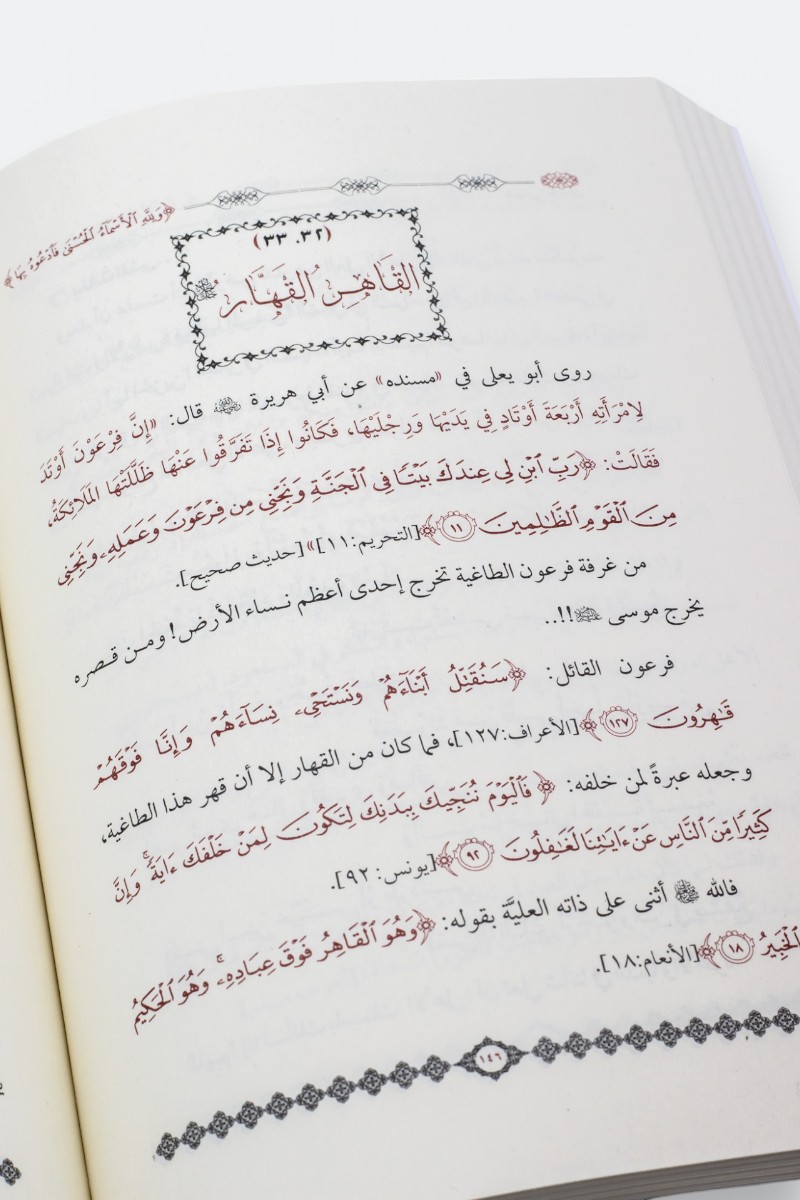 ﴿وَلِلَّهِ الْأَسْمَاءُ الْحُسْنَى فَادْعُوهُ بِهَا﴾
(٣٢، ٣٣)
القَاهِرُ القَهَّارُ ﷻ
روى أبو يعلى في «مسنده» عن أبي هريرة رضي الله عنه قال: «إِنَّ فِرْعَوْنَ أَوْتَدَ
لِامْرَأَتِهِ أَرْبَعَةَ أَوْتَادٍ فِي يَدَيْهَا وَرِجْلَيْهَا، فَكَانُوا إِذَا تَفَرَّقُوا عَنْهَا ظَلَّلَتْهَا المَلَائِكَةُ،
فَقَالَتْ: ﴿رَبِّ ٱبْنِ لِى عِندَكَ بَيْتًا فِى ٱلْجَنَّةِ وَنَجِّنِى مِن فِرْعَوْنَ وَعَمَلِهِۦ وَنَجِّنِى
مِنَ ٱلْقَوْمِ ٱلظَّٰلِمِينَ ١١﴾ [التحريم: ١١]» [حديث صحيح].
من غرفة فرعون الطاغية تخرج إحدى أعظم نساء الأرض! ومن قصره
يخرج موسى ﷺ!!..
فرعون القائل: ﴿سَنُقَتِّلُ أَبْنَآءَهُمْ وَنَسْتَحْىِۦ نِسَآءَهُمْ وَإِنَّا فَوْقَهُمْ
قَٰهِرُونَ ١٢٧﴾ [الأعراف: ١٢٧]، فما كان من القهار إلا أن قهر هذا الطاغية،
وجعله عبرةً لمن خلفه: ﴿فَٱلْيَوْمَ نُنَجِّيكَ بِبَدَنِكَ لِتَكُونَ لِمَنْ خَلْفَكَ ءَايَةً ۚ وَإِنَّ
كَثِيرًا مِّنَ ٱلنَّاسِ عَنْ ءَايَٰتِنَا لَغَٰفِلُونَ ٩٢﴾ [يونس: ٩٢].
فالله ﷻ أثنى على ذاته العليَّة بقوله: ﴿وَهُوَ ٱلْقَاهِرُ فَوْقَ عِبَادِهِۦ ۚ وَهُوَ ٱلْحَكِيمُ
ٱلْخَبِيرُ ١٨﴾ [الأنعام: ١٨].
١٤٦